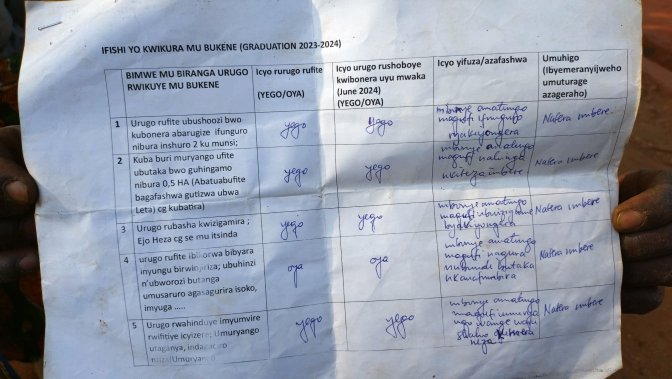 IFISHI YO KWIKURA MU BUKENE (GRADUATION 2023-2024)
BIMWE MU BIRANGA URUGO
RWIKUYE MU BUKENE
Icyo rurugo rufite
(YEGO/OYA)
Icyo urugo rushoboye
kwibonera uyu mwaka
(June 2024)
(YEGO/OYA)
Icyo yifuza/azafashwa
Umuhigo
(Ibyemeranyijweho
umuturage
azageraho)
1
Urugo rufite ubushoozi bwo
kubonera abarugize ifunguro
nibura inshuro 2 ku munsi;
yego
yego
mbonye amatungo
magufi ifunguro
ryakiyongera
Natera imbere
2
Kuba buri muryango ufite
ubutaka bwo guhingamo
nibura 0,5 HA (Abatuabufite
bagafashwa gutizwa ubwa
Leta) cg kubatira)
yego
yego
mbonye amatungo
magufi
Natera imbere
3
Urugo rubasha kwizigamira ;
Ejo Heza cg se mu itsinda
yego
yego
mbonye amatungo
magufi
byakiyongera
Natera imbere
4
urugo rufite ibikorwa bibyara
inyungu birwinjiriza; ubuhinzi
n'ubworozi butanga
umusaruro agasagurira isoko,
imyuga .....
oya
oya
mbonye amatungo
magufi nagura
ubutaka
Natera imbere
5
Urugo rwahinduye imyumvire
rwifitiye icyizere; Umuryango
utaganya,
yego
yego
mbonye amatungo
magufi
neza
Natera imbere